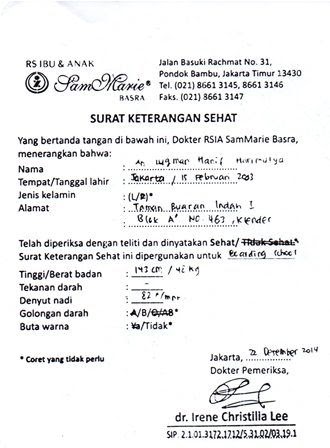 RS IBU & ANAK
SamMarie®
BASRA
Jalan Basuki Rachmat No. 31,
Pondok Bambu, Jakarta Timur 13430
Tel. (021) 8661 3145, 8661 3146
Faks. (021) 8661 3147
SURAT KETERANGAN SEHAT
Yang bertanda tangan di bawah ini, Dokter RSIA SamMarie Basra,
menerangkan bahwa:
Nama : Hanif
Tempat/Tanggal lahir : Jakarta / 15 Februari 2003
Jenis kelamin : (L/P)*
Alamat : Taman Buaran Indah I
Blok A NO. 463, Klender
Telah diperiksa dengan teliti dan dinyatakan Sehat/ Tidak Sehat.*
Surat Keterangan Sehat ini dipergunakan untuk Boarding School
Tinggi/Berat badan : 143 cm / 42 kg
Tekanan darah : -
Denyut nadi : 82 x/mnt
Golongan darah : A/B/O/AB*
Buta warna : Ya/Tidak*
* Coret yang tidak perlu
Jakarta, 22 Desember 2014
Dokter Pemeriksa,
dr. Irene Christilia Lee
SIP. 2.1.01.3172.1712/5.31.02/03.19.1